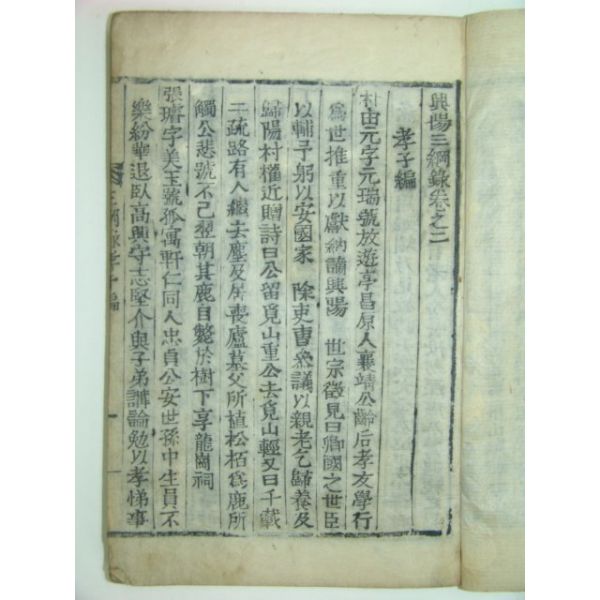 興陽三綱錄卷之二
孝子編
朴由元字元瑞號放遊亭昌原人襄靖公齡后孝友學行
爲世推重以獻納謫興陽 世宗徵見曰卿國之世臣
以輔予躬以安國家 除吏曹叅議以親老乞歸養及
歸陽村權近贈詩曰公留覓山重公去覓山輕又曰千載
二疏路有人繼去塵及居喪廬墓父所植松栢爲鹿所
觸公悲號不已翌朝其鹿自斃於樹下享龍岡祠
張璿字美玉號孤寓軒仁同人忠貞公安世孫中生員不
樂紛華退臥高興守志堅介與子弟講論勉以孝悌事
三綱錄孝子編